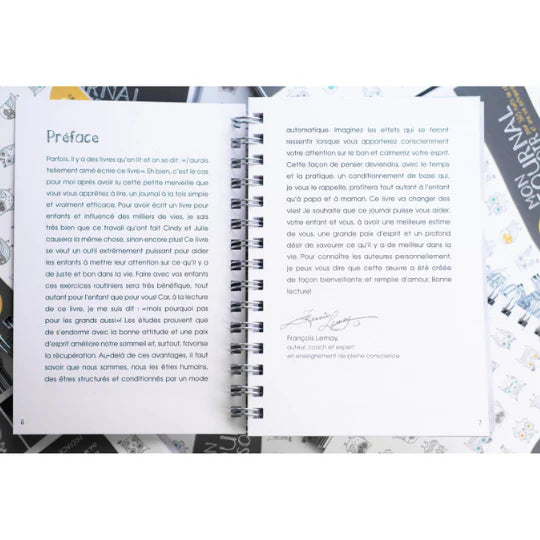 Préface
Parfois, il y a des livres qu'on lit et on se dit : «j'aurais
tellement aimé écrire ce livre». Eh bien, c'est le cas
pour moi après avoir lu cette petite merveille que
vous vous apprêtez à lire, un journal à la fois simple
et vraiment efficace. Pour avoir écrit un livre pour
enfants et influencé des milliers de vies, je sais
très bien que ce travail qu'ont fait Cindy et Julie
causera la même chose, sinon encore plus! Ce livre
se veut un outil extrêmement puissant pour aider
les enfants à mettre leur attention sur ce qu'il y a
de juste et bon dans la vie. Faire avec vos enfants
ces exercices routiniers sera très bénéfique, tout
autant pour l'enfant que pour vous! Car, à la lecture
de ce livre, je me suis dit : «mais pourquoi pas
pour les grands aussi»! Les études prouvent que
de s'endormir avec la bonne attitude et une paix
d'esprit améliore notre sommeil et, surtout, favorise
la récupération. Au-delà de ces avantages, il faut
savoir que nous sommes, nous les êtres humains,
des êtres structurés et conditionnés par un mode
6
automatique. Imaginez les effets qui se feront
ressentir lorsque vous apporterez consciemment
votre attention sur le bon et calmerez votre esprit.
Cette façon de penser deviendra, avec le temps
et la pratique, un conditionnement de base qui,
je vous le rappelle, profitera tout autant à l'enfant
qu'à papa et à maman. Ce livre va changer des
vies! Je souhaite que ce journal puisse vous aider,
votre enfant et vous, à avoir une meilleure estime
de vous, une grande paix d'esprit et un profond
désir de savourer ce qu'il y a de meilleur dans la
vie. Pour connaître les auteures personnellement,
je peux vous dire que cette œuvre a été créée
de façon bienveillante et remplie d'amour. Bonne
lecture!
François Lemay,
auteur, coach et expert
en enseignement de pleine conscience
7
MON
JOURNAL